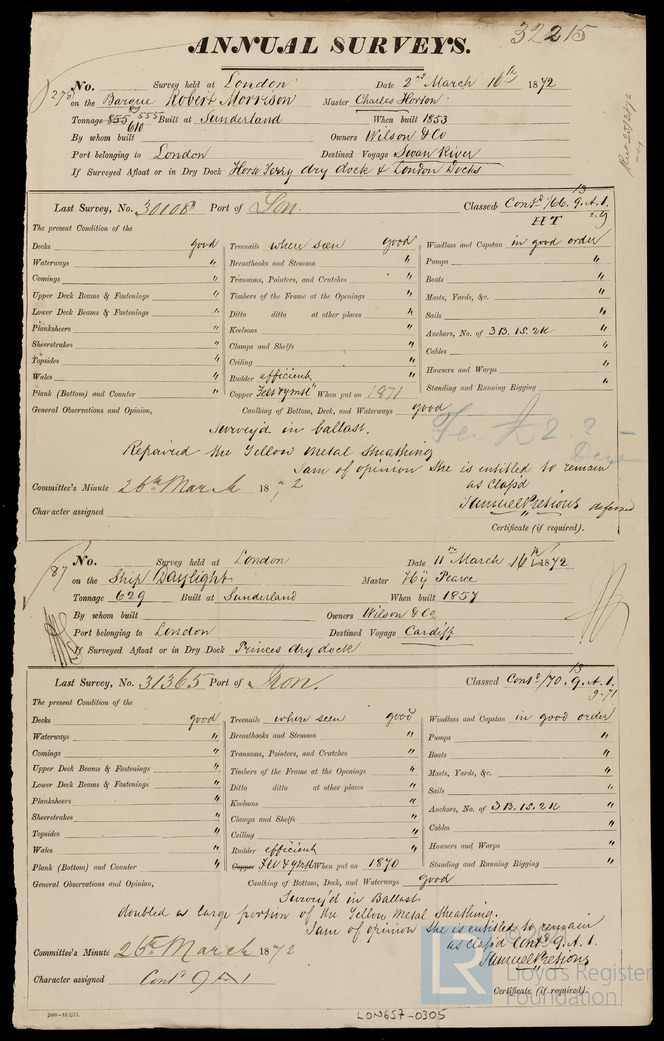 32215
ANNUAL SURVEYS.
278
No. Survey held at London Date 2nd March 16th 1872
on the Barque Robert Morrison Master Charles Horton
Tonnage 855 555 610 Built at Sunderland When built 1853
By whom built Owners Wilson & Co
Port belonging to London Destined Voyage Swan River
If Surveyed Afloat or in Dry Dock Horse Ferry dry dock & London Docks
Last Survey, No. 30108 Port of Lon. Classed Contd /66. 13 9. A. 1.
HT
The present Condition of the
Decks good Treenails where seen good Windlass and Capstan in good order
Waterways " Breasthooks and Stemson " Pumps "
Comings " Transoms, Pointers, and Crutches " Boats "
Upper Deck Beams & Fastenings " Timbers of the Frame at the Openings " Masts, Yards, &c. "
Lower Deck Beams & Fastenings " Ditto ditto at other places " Sails "
Planksheers " Keelsons " Anchors, No. of 3 B. 1S. 2K "
Sheerstrakes " Clamps and Shelfs " Cables "
Topsides " Ceiling " Hawsers and Warps "
Wales " Rudder efficient Standing and Running Rigging "
Plank (Bottom) and Counter " Copper Felt & ymtl " When put on 1871
General Observations and Opinion, Caulking of Bottom, Deck, and Waterways good
Survey'd in ballast.
Fee £2.2.-
Repaired the Yellow Metal Sheathing
I am of opinion she is entitled to remain
as Class'd
Committee's Minute 26th March 1872
Samuel Pretious
deferred
Character assigned
Certificate (if required).
87
No. Survey held at London Date 11th March 16th 1872
on the Ship Daylight Master Hy Pearce
Tonnage 629 Built at Sunderland When built 1857
By whom built Owners Wilson & Co
Port belonging to London Destined Voyage Cardiff
If Surveyed Afloat or in Dry Dock Princes dry dock
Last Survey, No. 31365 Port of Lon. Classed Contd /70. 13 9. A. 1.
9-71
The present Condition of the
Decks good Treenails where seen good Windlass and Capstan in good order
Waterways " Breasthooks and Stemson " Pumps "
Comings " Transoms, Pointers, and Crutches " Boats "
Upper Deck Beams & Fastenings " Timbers of the Frame at the Openings " Masts, Yards, &c. "
Lower Deck Beams & Fastenings " Ditto ditto at other places " Sails "
Planksheers " Keelsons " Anchors, No. of 3 B. 1S. 2K "
Sheerstrakes " Clamps and Shelfs " Cables "
Topsides " Ceiling " Hawsers and Warps "
Wales " Rudder efficient Standing and Running Rigging "
Plank (Bottom) and Counter " Copper Felt & ymtl When put on 1870
General Observations and Opinion, Caulking of Bottom, Deck, and Waterways good
Survey'd in Ballast
doubled a large portion of the Yellow Metal Sheathing.
I am of opinion she is entitled to remain
as Class'd Contd 9. A. 1.
Committee's Minute 26th March 1872
Samuel Pretious
Character assigned Contd 9 A 1
Certificate (if required).
LR Lloyd's Register Foundation
LON657-0305